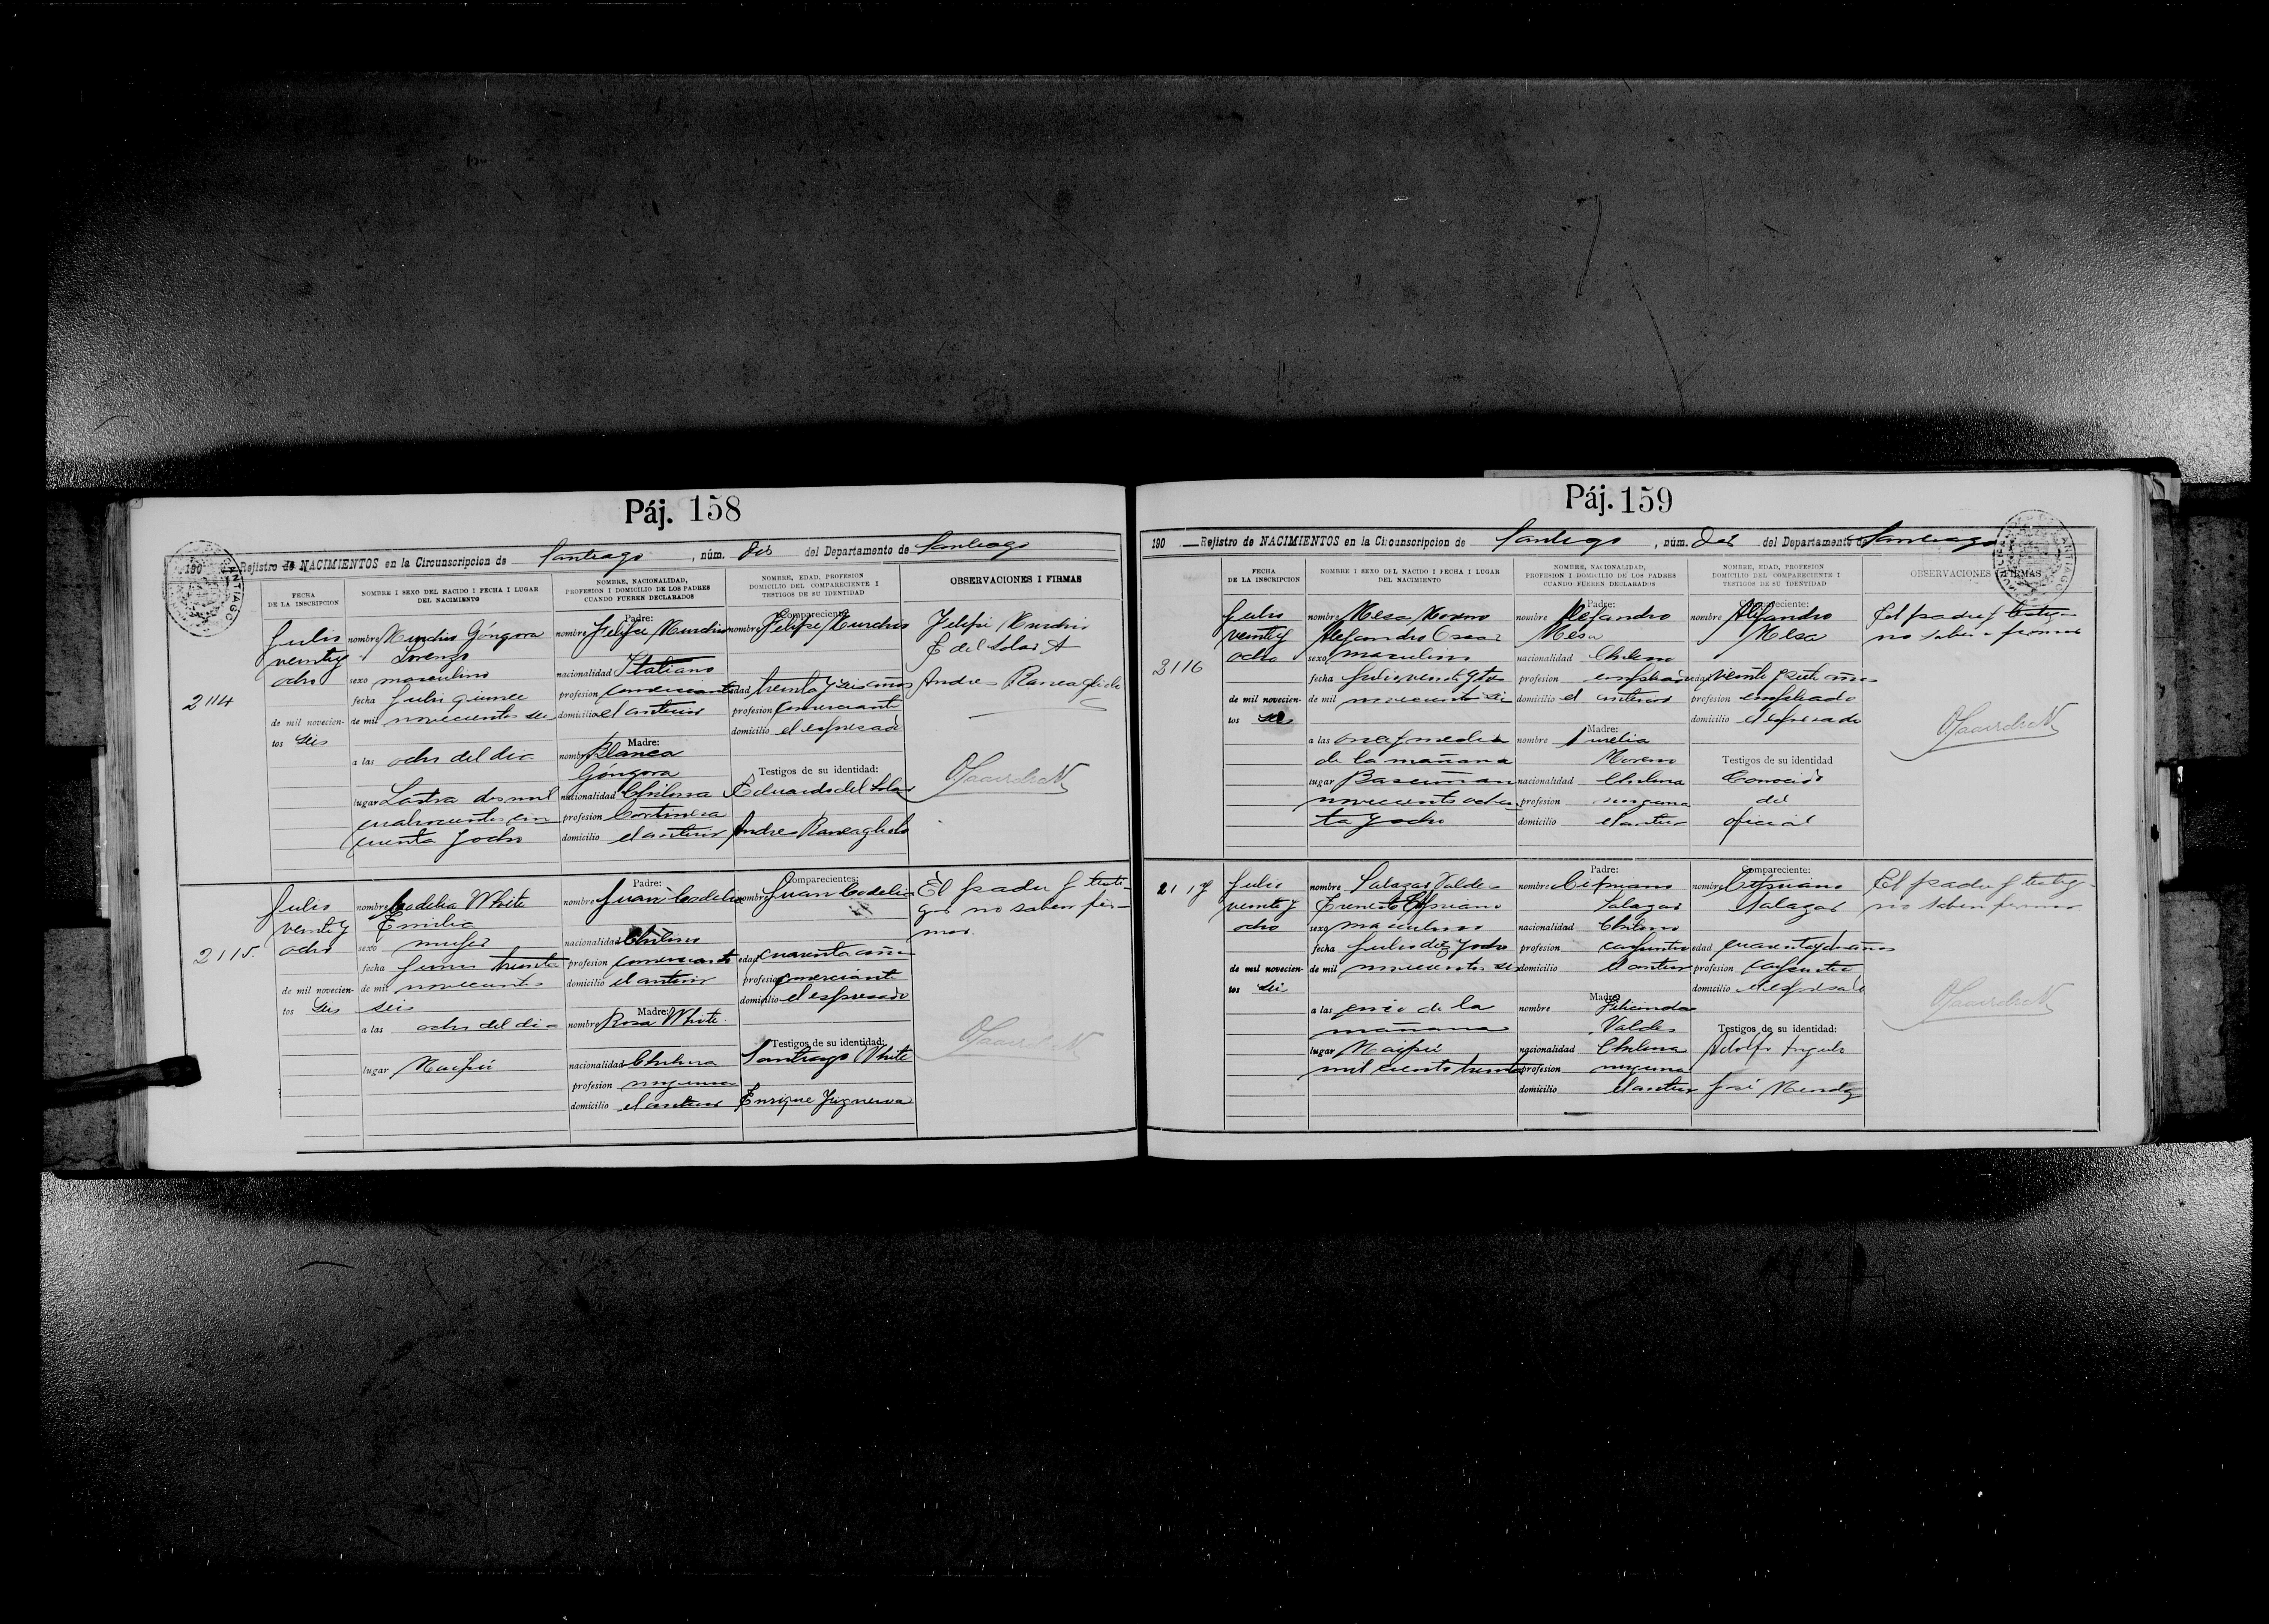 Páj. 158
190 Rejistro de NACIMIENTOS en la Circunscripcion de Santiago, núm. dos del Departamento de Santiago
FECHA DE LA INSCRIPCION
NOMBRE I SEXO DEL NACIDO I FECHA I LUGAR DEL NACIMIENTO
NOMBRE, NACIONALIDAD, PROFESION I DOMICILIO DE LOS PADRES CUANDO FUEREN DECLARADOS
NOMBRE, EDAD, PROFESION DOMICILIO DEL COMPARECIENTE I TESTIGOS DE SU IDENTIDAD
OBSERVACIONES I FIRMAS
2114
Julio
veinte y
ocho
de mil novecien-
tos seis
nombre Góngora
Lorenzo
sexo masculino
fecha Julio quince
de mil novecientos seis
a las ocho del dia
lugar Lastra dos mil
cuatrocientos cin
cuenta y ocho
Padre:
nombre Felipe
nacionalidad Italiano
profesion comerciante
domicilio el anterior
Madre:
nombre Blanca
Gongora
nacionalidad Chilena
profesion
domicilio el anterior
Compareciente:
nombre Felipe
edad treinta y seis años
profesion Comerciante
domicilio el espresado
Testigos de su identidad:
Eduardo del Solar
Andres
Felipe
E del Solar A
Andres
2115.
Julio
veinte y
ocho
de mil novecien-
tos seis
nombre Codelia White
Emilia
sexo mujer
fecha Junio treinta
de mil novecientos
seis
a las ocho del dia
lugar Maipú
Padre:
nombre Juan Codelia
nacionalidad Chileno
profesion comerciante
domicilio el anterior
Madre:
nombre Rosa White.
nacionalidad Chilena
profesion ninguna
domicilio el anterior
Comparecientes:
nombre Juan Codelia
edad cuarenta años
profesion comerciante
domicilio el espresado
Testigos de su identidad:
Santiago White
Enrique Figueroa
El padre y testi-
gos no saben fir-
mar.
Páj. 159
190 Rejistro de NACIMIENTOS en la Circunscripcion de Santiago, núm. dos del Departamento de Santiago
FECHA DE LA INSCRIPCION
NOMBRE I SEXO DEL NACIDO I FECHA I LUGAR DEL NACIMIENTO
NOMBRE, NACIONALIDAD, PROFESION I DOMICILIO DE LOS PADRES CUANDO FUEREN DECLARADOS
NOMBRE, EDAD, PROFESION DOMICILIO DEL COMPARECIENTE I TESTIGOS DE SU IDENTIDAD
OBSERVACIONES I FIRMAS
2116
Julio
veinte y
ocho
de mil novecien-
tos seis
nombre Mesa Moreno
Alejandro Oscar
sexo masculino
fecha Julio veinte y dos
de mil novecientos seis
a las once y media
de la mañana
lugar Bascuñan
novecientos ochen
ta y ocho
Padre:
nombre Alejandro
Mesa
nacionalidad Chileno
profesion empleado
domicilio el anterior
Madre:
nombre Amelia
Moreno
nacionalidad Chilena
profesion ninguna
domicilio el anterior
Compareciente:
nombre Alejandro
Mesa
edad veinte y siete años
profesion empleado
domicilio el espresado
Testigos de su identidad
Conocido
del
oficial
El padre y testigos
no saben firmar
2117
Julio
veinte y
ocho
de mil novecien-
tos seis
nombre Salazar Valdes
Ernesto Cipriano
sexo masculino
fecha Julio diez y ocho
de mil novecientos seis
a las cinco de la
mañana
lugar Maipú
mil ciento treinta
Padre:
nombre Cipriano
Salazar
nacionalidad Chileno
profesion carpintero
domicilio el anterior
Madre:
nombre Felicinda
Valdes
nacionalidad Chilena
profesion ninguna
domicilio el anterior
Compareciente:
nombre Cipriano
Salazar
edad cuarenta y dos años
profesion carpintero
domicilio el espresado
Testigos de su identidad:
Adolfo Angulo
José Mendez
El padre y testigos
no saben firmar